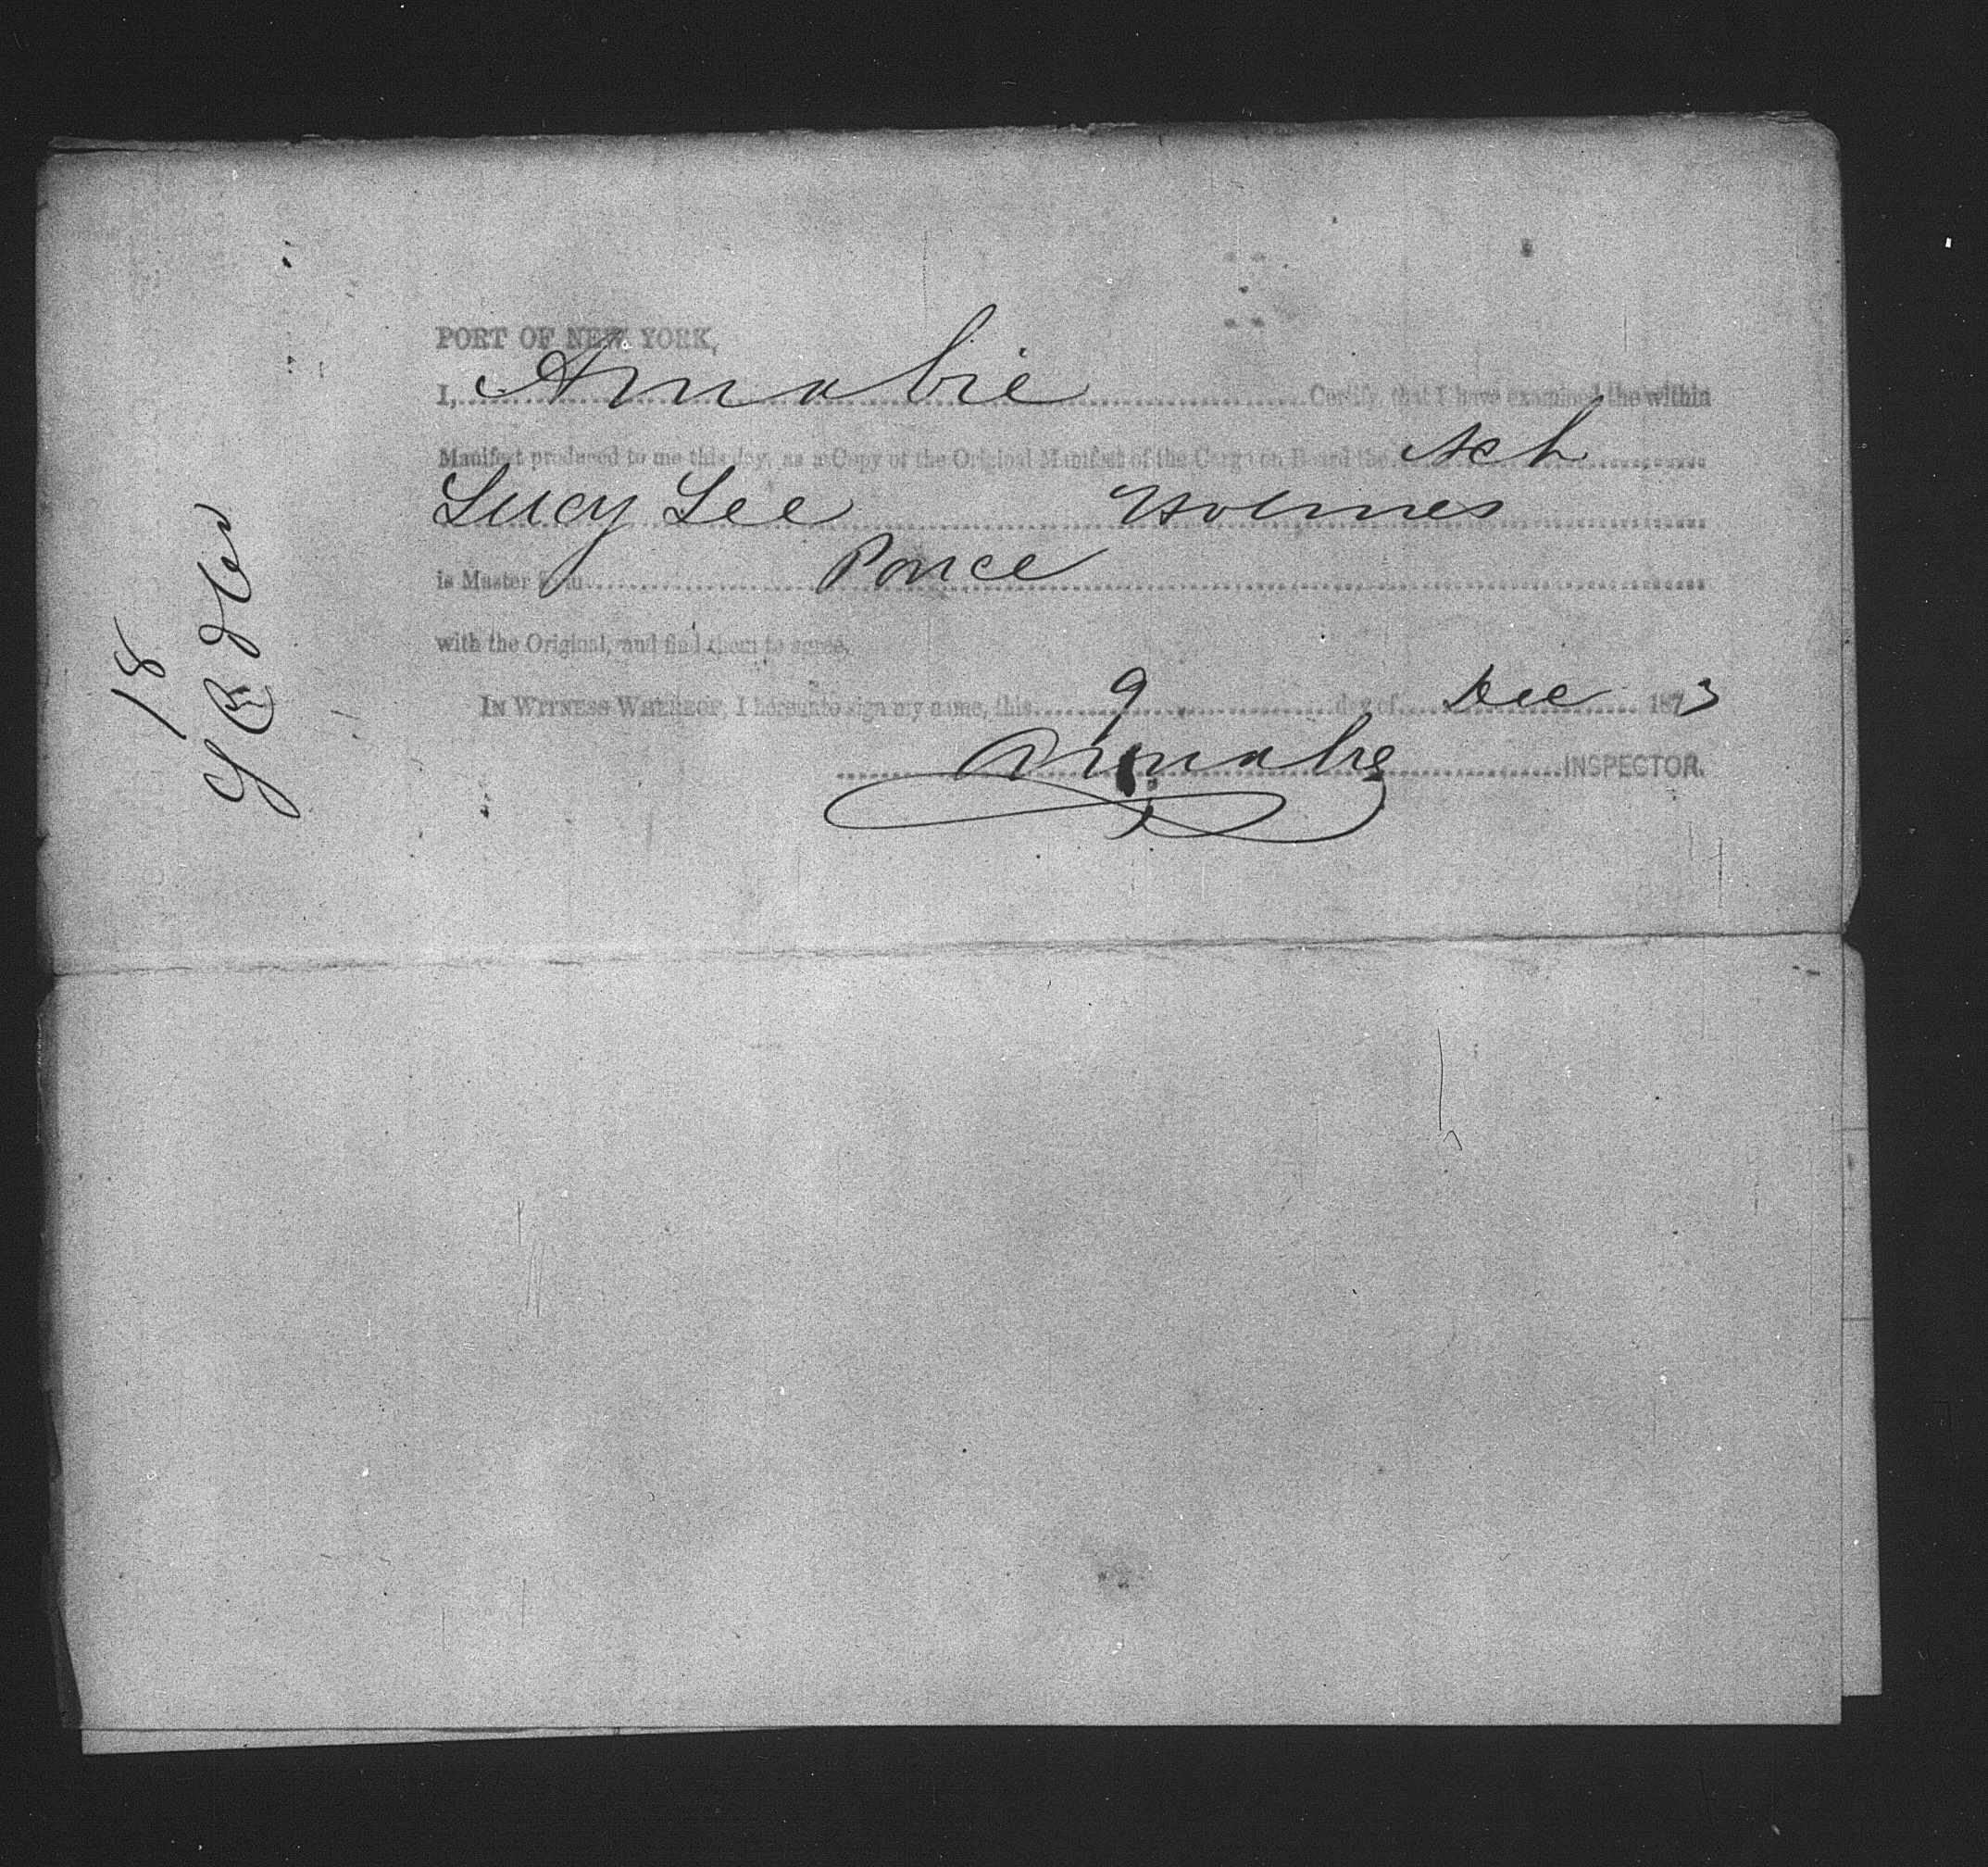 PORT OF NEW YORK,
I, Amabie Certify, that I have examined the within
Manifest produced to me this day, as a Copy of the Original Manifest of the Cargo on Board the Sch
Lucy Lee Holmes
is Master from Ponce
with the Original, and find them to agree.
IN WITNESS WHEREOF, I hereunto sign my name, this 9 day of Dec 1873
INSPECTOR.
18